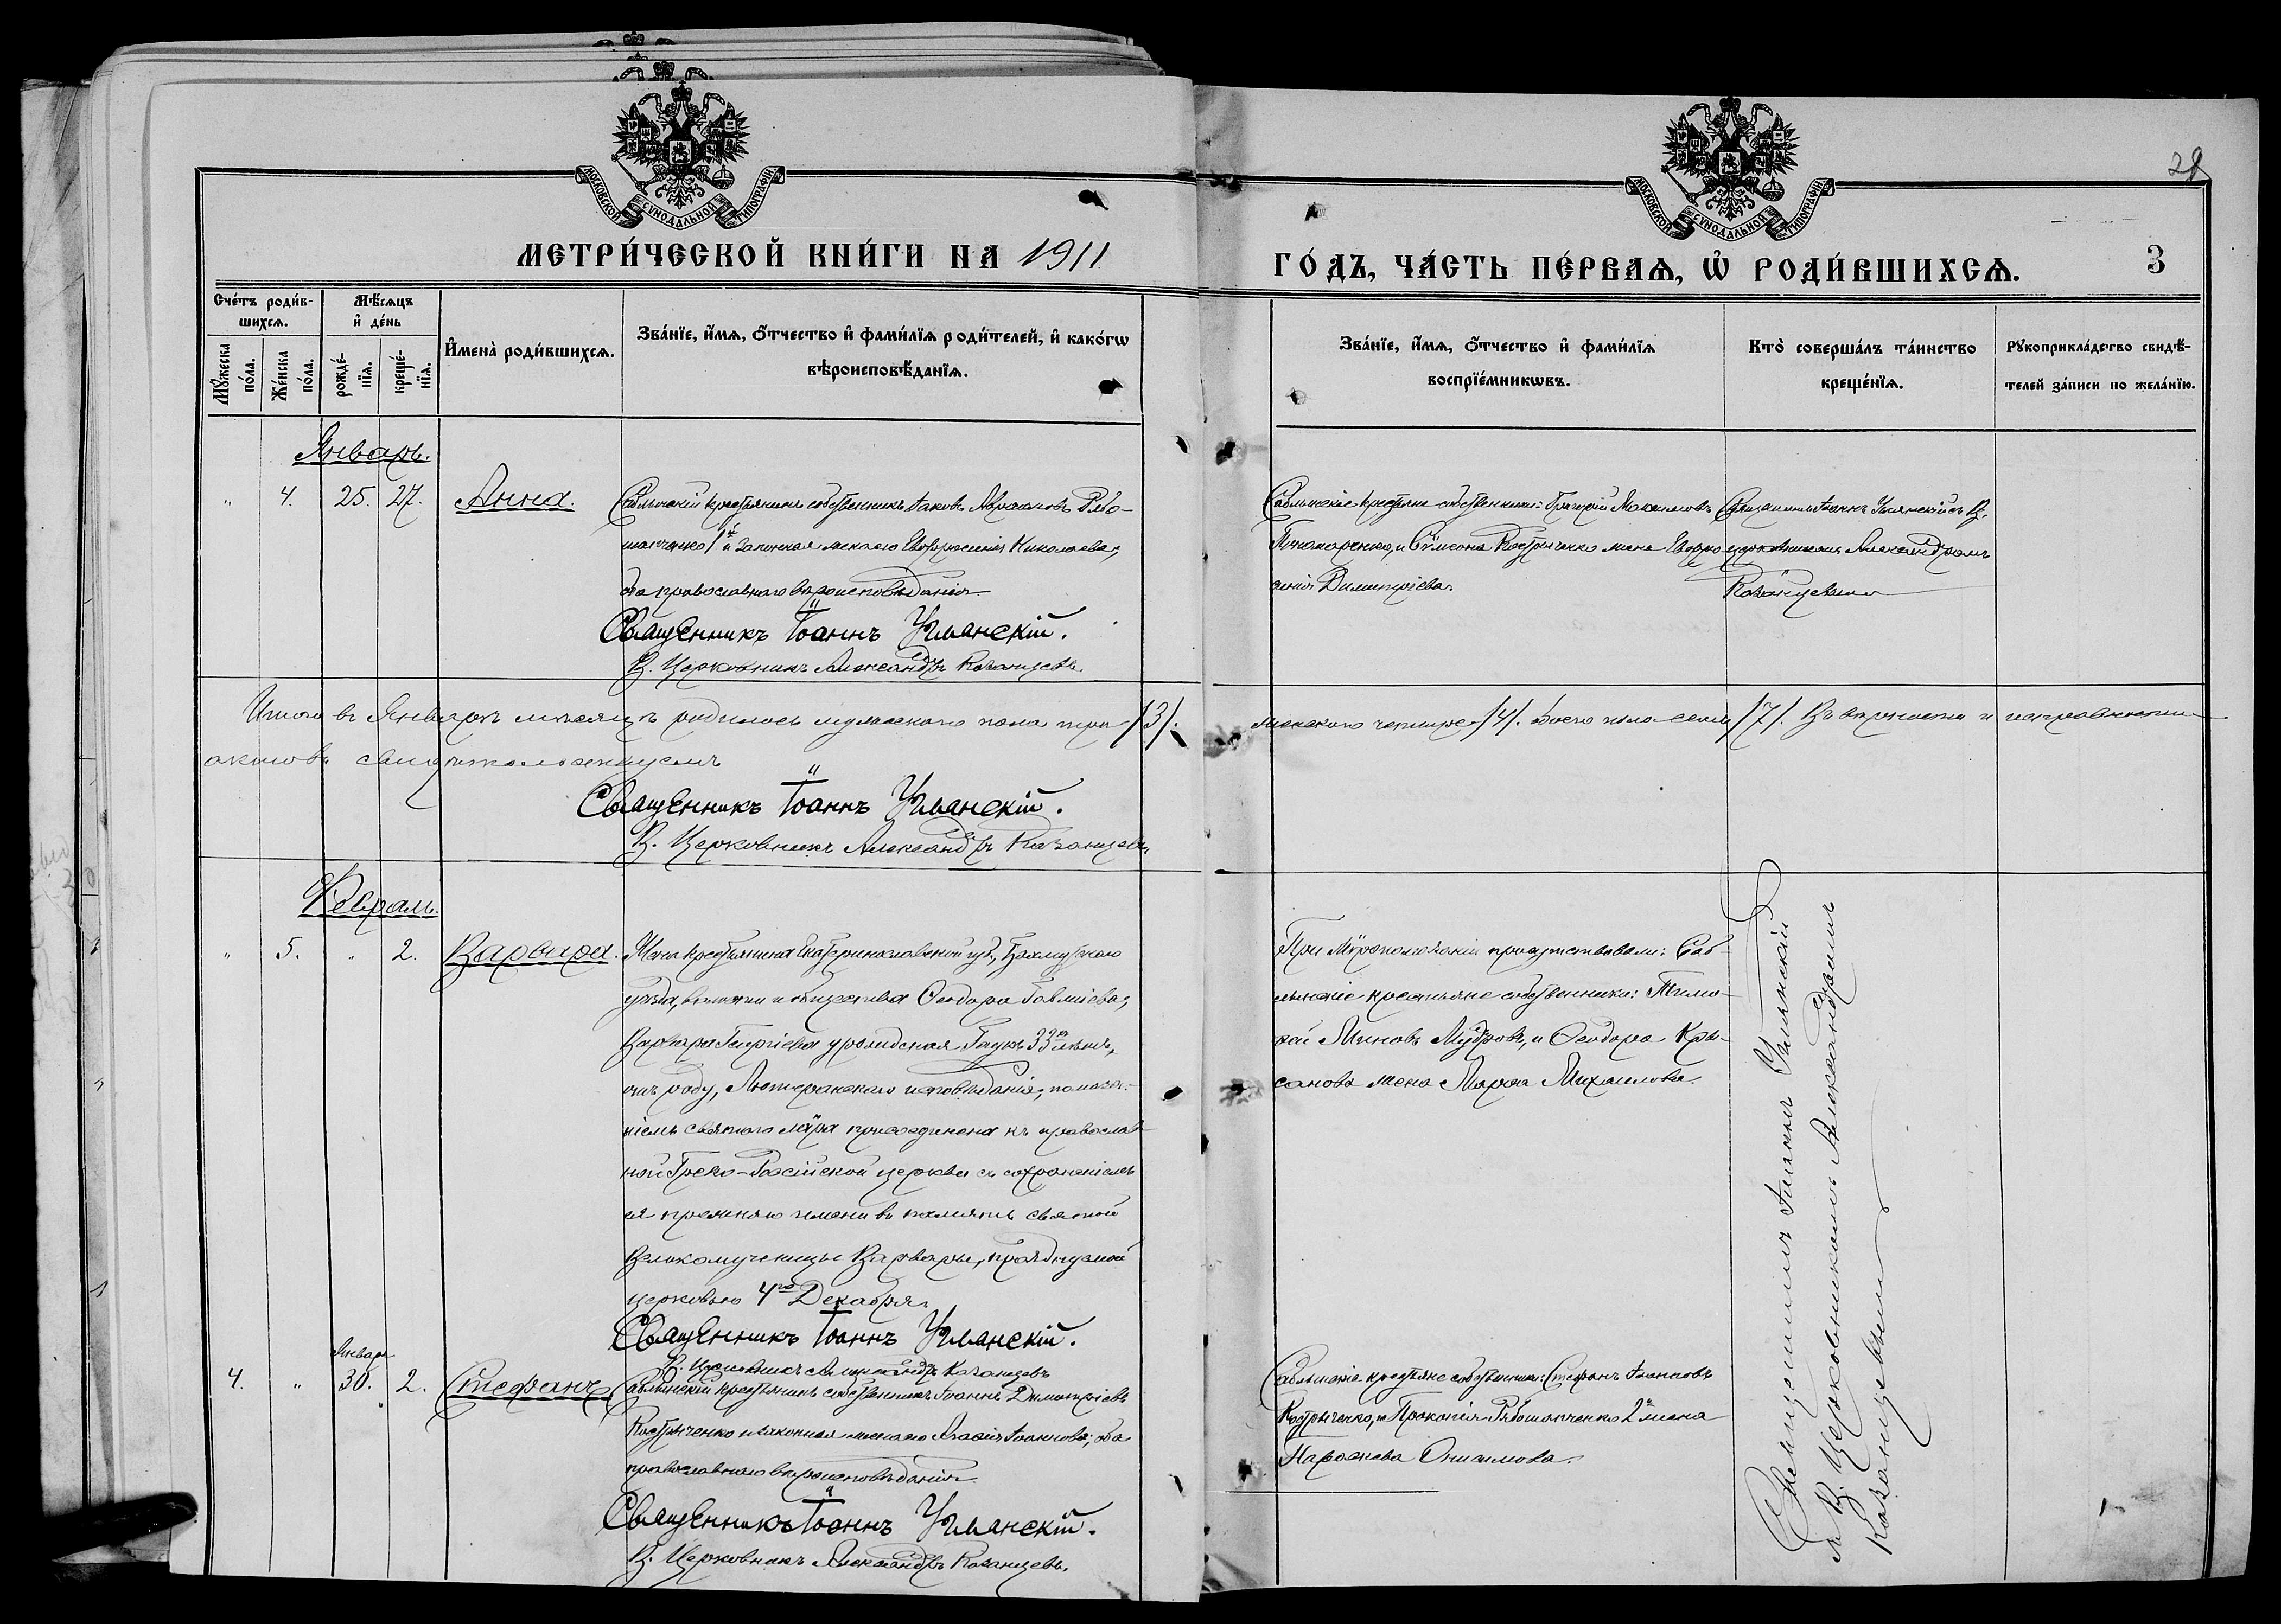 МОСКОВСКОЙ СѴНОДАЛЬНОЙ ТИПОГРАФІИ
МОСКОВСКОЙ СѴНОДАЛЬНОЙ ТИПОГРАФІИ
28
МЕТРИ́ЧЕСКОЙ КНИ́ГИ НА 1911
ГО́ДЪ, ЧА́СТЬ ПЕ́РВАѦ, Ѡ РОДИ́ВШИХСѦ.
3
Сче́тъ роди́в-
шихсѧ.
Мѣ́сѧцъ
и҆ де́нь
Мꙋ́жеска
по́ла.
Же́нска
по́ла.
рожде́-
нїѧ.
креще́-
нїѧ.
И҆мена̀ роди́вшихсѧ.
Зва́нїе, и҆́мѧ, ѻ҆́тчество и҆ фами́лїѧ роди́телей, и҆ како́гѡ
вѣроисповѣ́данїѧ.
Зва́нїе, и҆́мѧ, ѻ҆́тчество и҆ фами́лїѧ
воспрїе́мникѡвъ.
Кто̀ соверша́лъ та́инство
креще́нїѧ.
Рꙋкоприкла́дство свидѣ́-
телей за́писи по жела́нїю.
Январь.
" 4. 25. 27. Анна.
Сабльинскій крестьянинъ собственникъ Іаковъ Авраамовъ Рябо-
шапченко 1й и законная жена его Евфросинія Николаева;
оба православнаго вѣроисповѣданія
Священникъ Іоаннъ Уманскій.
В. Церковникъ Александръ Казанцевъ.
крестьяне собственники: Григорій Максимовъ
Пономаренко, и Сѵмеона Костриченко жена Евфро-
синія Димитріева.
Священникъ Іоаннъ Уманскій съ В.
церковникомъ Александромъ
Казанцевымъ
Итого въ Январѣ мѣсяцѣ родилось мужескаго пола три /3/.
женскаго четыре /4/. Обоего пола семь /7/. Въ вѣрности и исправности
актовъ свидѣтельствуемъ
Священникъ Іоаннъ Уманскій.
В. Церковникъ Александръ Казанцевъ.
Февраль.
" 5. " 2. Варвара.
Жена крестьянина Екатеринославской губ., Бахмутскаго
уѣзда, волости и общества Ѳеодора
Варвара Георгіева урожденная Гаукъ 33 лѣтъ,
отъ роду, Лютеранскаго исповѣданія, помаза-
ніемъ святого мѵра присоединена къ православ-
ной Греко-Россійской церкви съ сохраненіемъ
ея прежняго имени въ память святой
Великомученицы Варвары, празднуемой
церковью 4го Декабря.
Священникъ Іоаннъ Уманскій.
В. Церковникъ Александръ Казанцевъ
При Мѵропомазаніи присутствовали: Саб-
льинскіе крестьяне собственники: Тимо-
фей Миновъ Мудровъ, и Ѳеодора
жена Марѳа Михаилова.
Январь
4. " 30. 2. Стефанъ
Сабльинскій крестьянинъ собственникъ Іоаннъ Димитріевъ
Костриченко и законная жена его Агафія Іоаннова; оба
православнаго вѣроисповѣданія
Священникъ Іоаннъ Уманскій.
В. Церковникъ Александръ Казанцевъ.
крестьяне собственники: Стефанъ Іоанновъ
Костриченко, и Прокопія Рябошапченко 2й жена
Параскева Онисимова.
Священникомъ Іоанномъ Уманскимъ
съ В. Церковникомъ Александромъ
Казанцевымъ